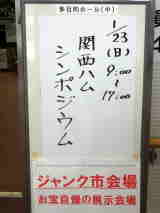 多目的ホール(中)
1/23(日)
9:00
~
17:00
関西ハム
シンポジウム
ジャンク市会場
お宝自慢の展示会場